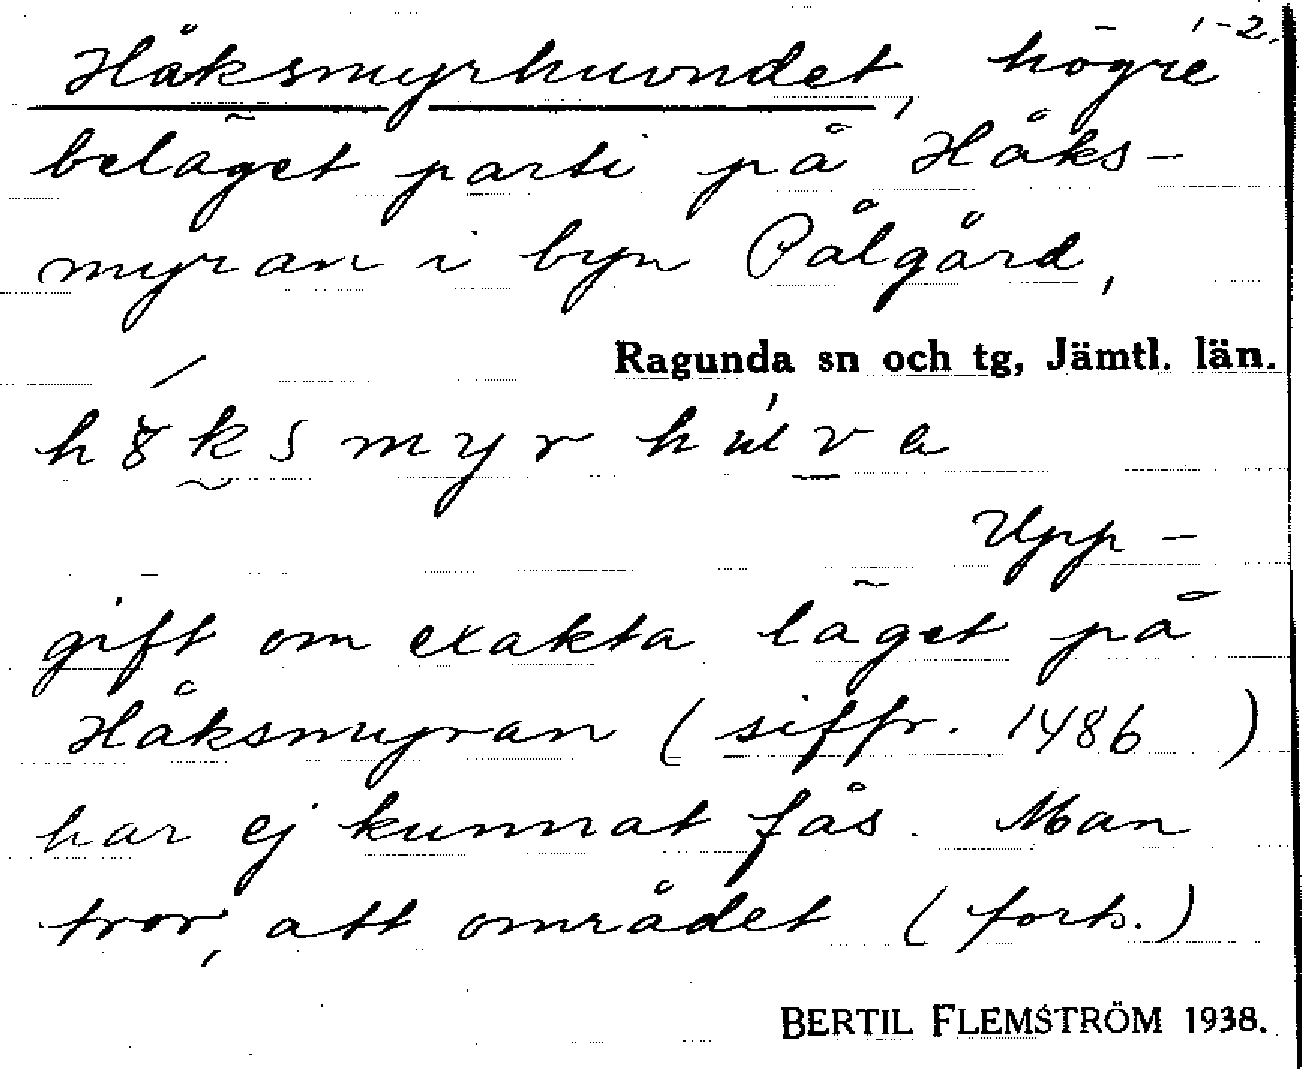 1-2.
Håksmyrhuvudet, högre
beläget parti på Håks-
myran i byn Pålgård,
Ragunda sn och tg, Jämtl. län.
Upp-
gift om exakta läget på
Håksmyran (siffr. 1486 )
har ej kunnat fås. Man
tror, att området (forts.)
BERTIL FLEMSTRÖM 1938.